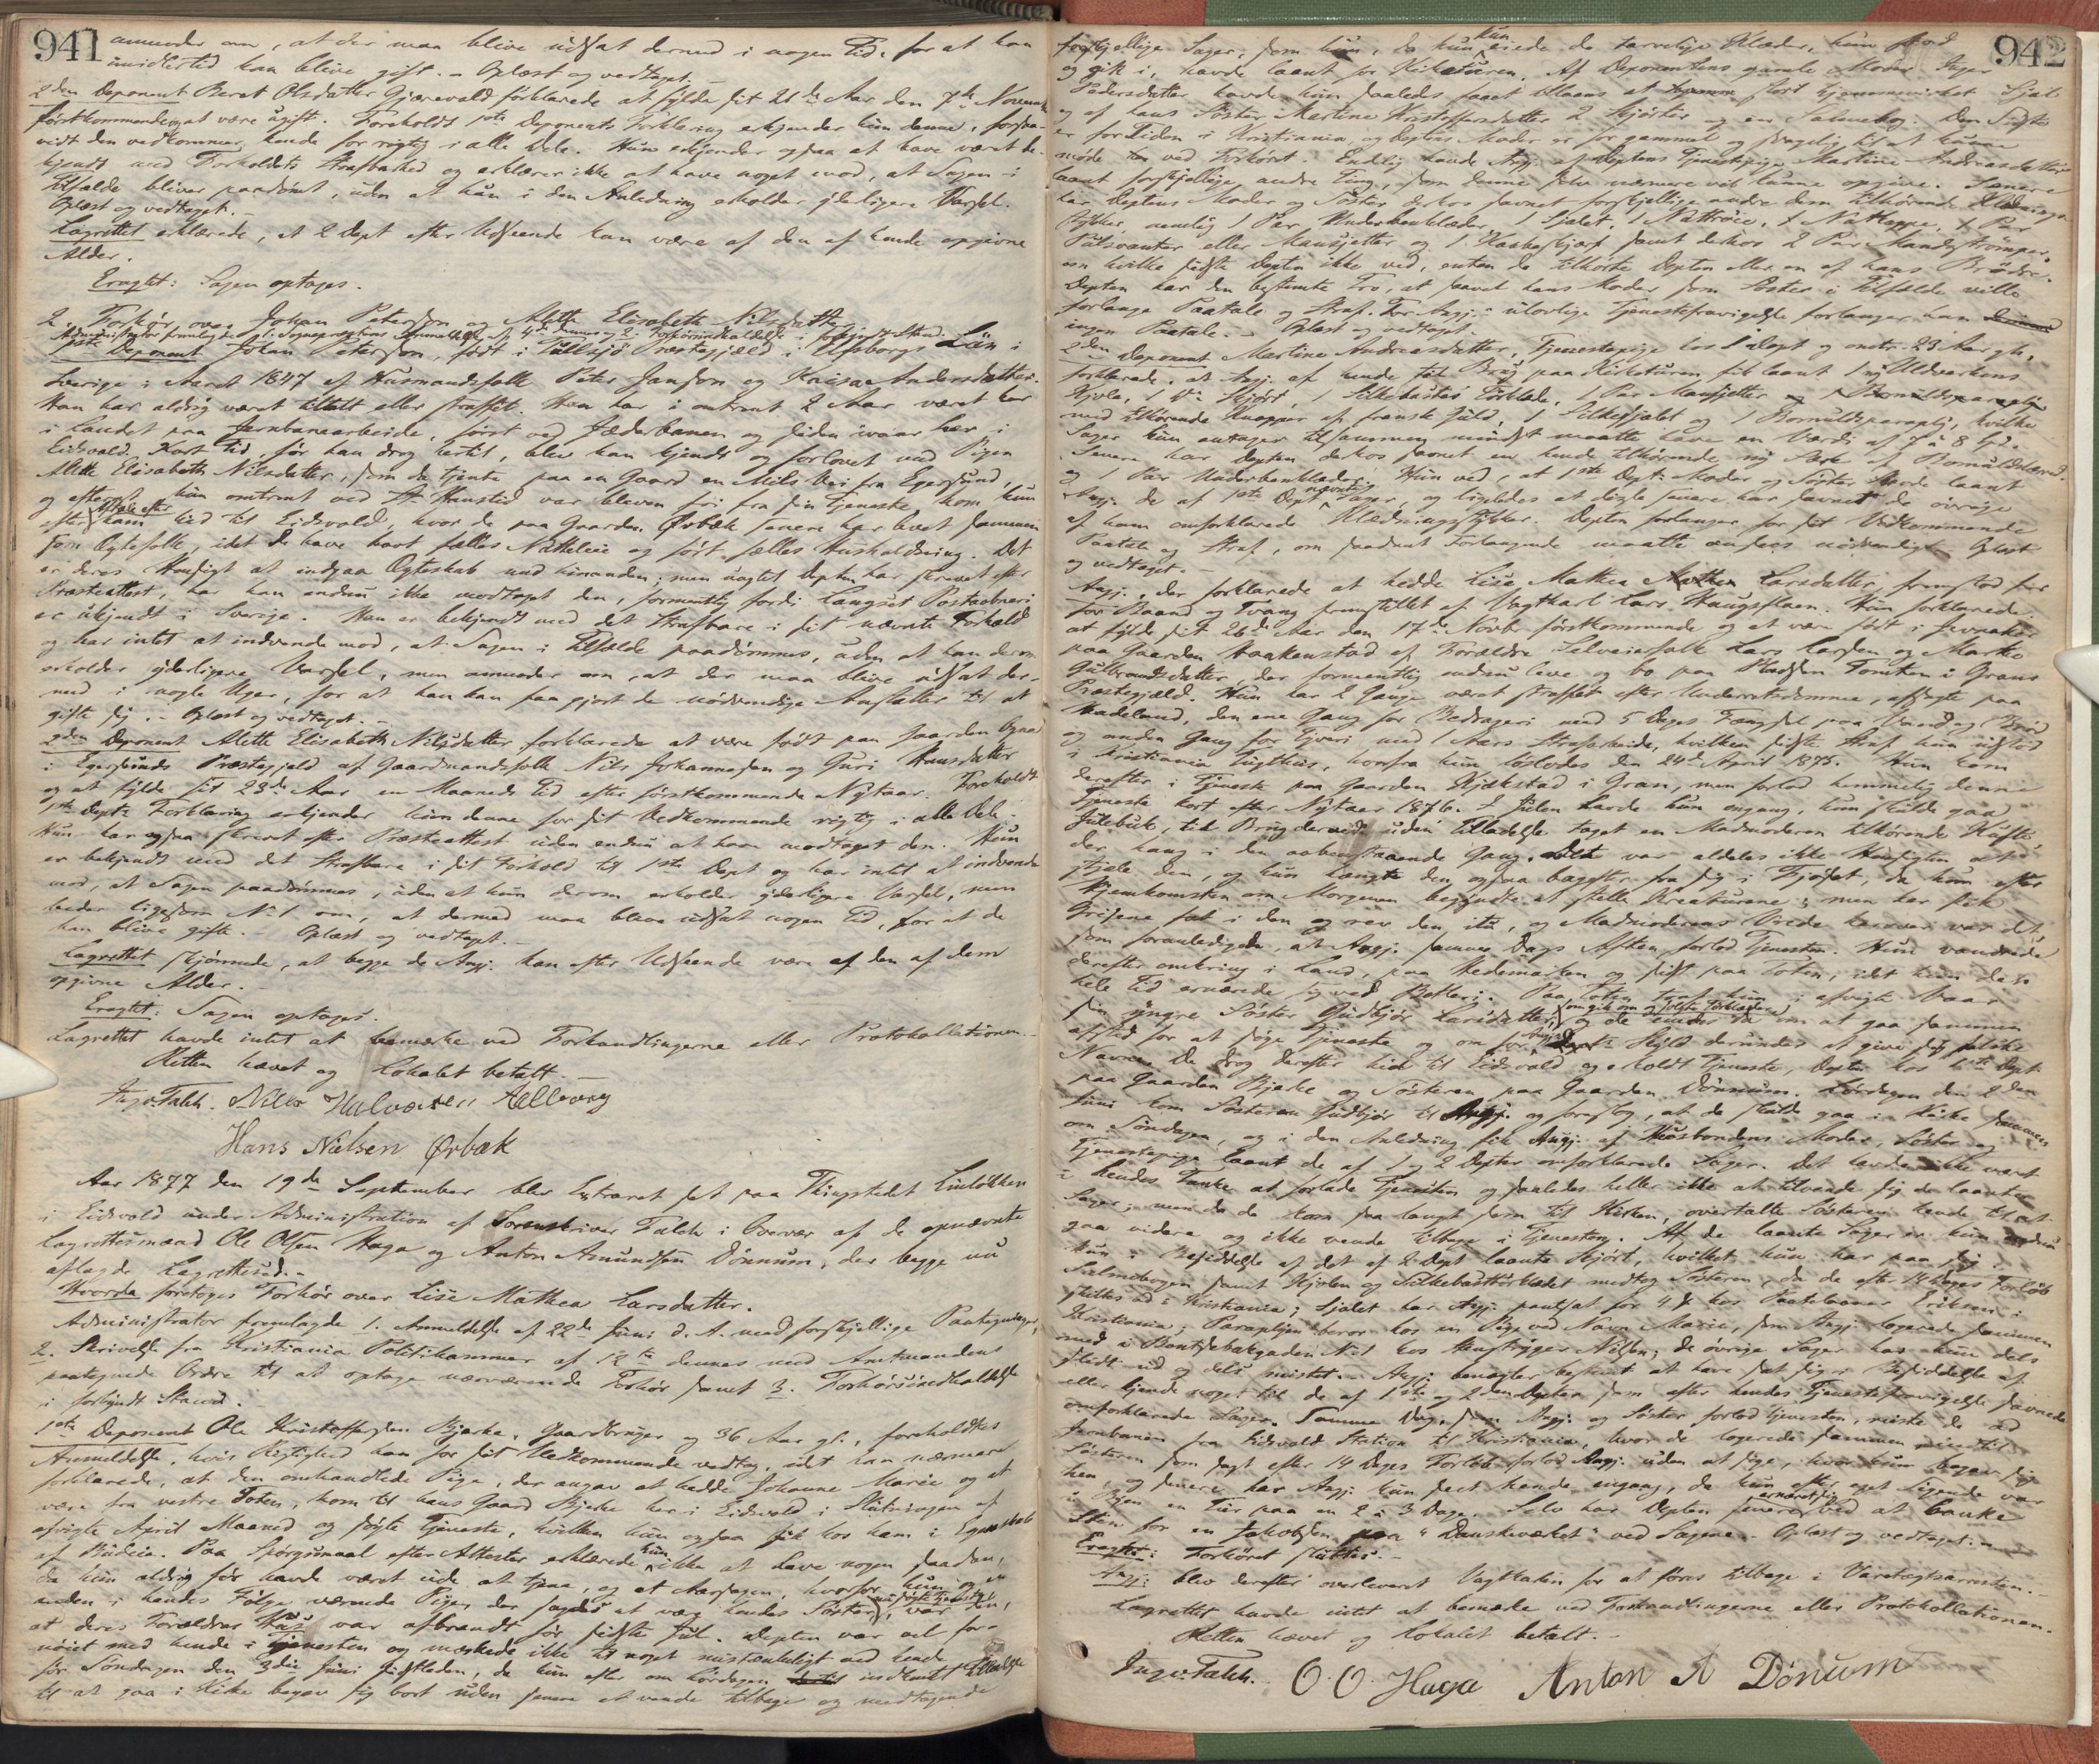 941
anmoder om, at der maa blive udsat dermed i nogen Tid, for at han
imidlertid kan blive gift. – Oplæst og vedtaget. –
2den Deponent Beret Olsdatter Gjærevald forklarede at fylde sit 21de Aar den 7de Novem
førstkommende og at være ugift. Foreholdt 1ste Deponents Forklaring erkjender hun denne, forsaa-
vidt den vedkommer hende for rigtig i alle Dele. Hun erkjender ogsaa at have været be-
kjendt med Forholdets Strafbarhed og erklærer ikke at have noget imod, at Sagen i
Tilfælde bliver paadømt, uden at hun i den Anledning erholder yderligere Varsel.
Oplæst og vedtaget. –
Lagrettet erklærede, at 2 Dept efter Udseende kan være af den af hende opgivne
Alder.
Eragtet: Sagen optages.
2. Forhør over Johan Peterson og Alette Elisabeth Nilsdatter
Administrator fremlagde 1. Sogneprestens Anmeldelse af 4de dennes og 2. Forhørsindkaldelse i forkyndt Stand.
1ste Deponent Johan Peterson, født i Tullsjø Præstegjæld i Elfsborgs Län i
Sverige i Aaret 1847 af Husmandsfolk Peter Janson og Kaisa Andersdatter.
Han har aldrig været tiltalt eller straffet. Han har i omtrent 2 Aar været her
i Landet paa Jernbanearbeide, først ved Jæderbanen og siden ivaar her i
Eidsvold. Kort Tid, før han drog hertil, blev han kjendt og forlovet med Pigen
Alette Elisabeth Nilsdatter, som da tjente paa en Gaard en Miils Vei fra Egersund,
og efterat hun omtrent ved St. Hanstid var bleven fri fra sin Tjeneste kom hun
efter Aftale efter ham hid til Eidsvold, hvor de paa Gaarden Ørbæk senere har levet sammen
som Ægtefolk, idet de have havt fælles Natteleie og ført fælles Husholdning. Det
er deres Hensigt at indgaa Ægteskab med hinanden; men uagtet Depten har skrevet efter
Præsteattest, har han endnu ikke modtaget den, formentlig fordi Langset Postaabneri
er ukjendt i Sverige. Han er bekjendt med det Strafbare i sit nævnte Forhold
og har intet at indvende mod, at Sagen i Tilfælde paadømmes, uden at han derom
erholder yderligere Varsel, men anmoder om, at der maa blive udsat der-
med i nogle Uger, for at han kan faa gjort de nødvendige Anstalter til at
gifte sig. – Oplæst og vedtaget. –
2den Deponent Alette Elisabeth Nilsdatter forklarede at være født paa Gaarden Ogna
i Egersunds Præstegjæld af Gaardmandsfolk Nils Johannesen og Guri Hansdatter
og at fylde sit 23de Aar en Maaneds Tid efter førstkommende Nytaar. Foreholdt
1ste Depts Forklaring erkjender hun denne for sit Vedkommende rigtig i alle Dele.
Hun har ogsaa skrevet efter Præsteattest uden endnu at have modtaget den. Hun
er bekjendt med det Strafbare i sit Forhold til 1ste Dept og har intet at indvende
mod, at Sagen paadømmes, uden at hun derom erholder yderligere Varsel, men
beder ligesom No 1 om, at dermed maa blive udsat nogen Tid, for at de
kan blive gifte. – Oplæst og vedtaget. –
Lagrettet skjønnede, at begge de Angj. kan efter Udseende være af den af dem
opgivne Alder. –
Eragtet: Sagen optages.
Lagrettet havde intet at bemærke ved Forhandlingerne eller Protokollationen.
Retten hævet og Lokalet betalt. –
Ingv. Falch. Nills Halvorsen
Hans Nielsen Ørbæk
Aar 1877 den 19de September blev Extraret sat paa Thingstedet Linløkken
i Eidsvold under Administration af Sorenskriver Falch i Overvær af de opnævnte
Lagrettesmænd Ole Olsen Haga og Anton Amundsen Dønnum, der begge nu
aflagde Lagretteed. –
Hvorda foretoges Forhør over Lise Mathea Larsdatter.
Administrator fremlagde 1. Anmeldelse af 22de Juni d. A. med forskjellige Paategninger,
2. Skrivelse fra Kristiania Politikammer af 12te dennes med Amtmandens
paategnede Ordre til at optage nærværende Forhør samt 3. Forhørsindkaldelse
i forkyndt Stand. –
1ste Deponent Ole Kristoffersen Bjerke, Gaardbruger og 36 Aar gl., foreholdtes
Anmeldelse, hvis Rigtighed han for sit Vedkommende vedtog, idet han nærmere
forklarede, at den omhandlede Pige, der angav at hedde Johanne Marie og at
være fra vestre Toten, kom til hans Gaard Bjerke her i Eidsvold i Slutningen af
afvigte April Maaned og søgte Tjeneste, hvilken hun ogsaa fik hos ham i Egenskab
af Budeie. Paa Spørgsmaal efter Attester erklærede hun ikke at have nogen saadan,
da hun aldrig før havde været ude at tjene, og at Aarsagen, hvorfor hun og en
anden i hendes Følge værende Pige, der sagdes at være hendes Søster, nu søgte Tjeneste, var den,
at deres Forældres Hus var afbrændt før sidste Jul. Depten var vel for-
nøiet med hende i Tjenesten og mærkede ikke til noget mistænkeligt ved hende
før Søndagen den 3die Juni sidstleden, da hun efter om Lørdagen indhentet Tilladelse
til at gaa i Kirke begav sig bort uden senere at vende tilbage og medtagende
942
forskjellige Sager, som hun, da hun kun eiede de tarvelige Klæder, hun stod
og gik i, havde laant for Kirketuren. Af Deponentens gamle Moder Inger
Pedersdatter havde hun saaledes faaet tillaans et stort hjemmevirket Sjal
og af hans Søster Martine Kristoffersdatter 2 Skjørter og en Salmebog. Den Sidste
er for Tiden i Kristiania og Deptens Moder er for gammel og svagelig til at kunne
møde her ved Forhøret. Endelig havde Angj. af Deptens Tjenestepige Martine Andreasdatter
laant forskjellige andre Ting, som denne selv nærmere vil kunne opgive. Senere
har Deptens Moder og Søster derhos savnet forskjellige andre dem tilhørende Klædnings-
stykker, nemlig 1 Par Underbenklæder, 1 Sjalet, 1 Nattrøie, 1 Natkappe, 1 Par
Pulsvanter eller Mansjetter og 1 Kaskeskjærf samt derhos 2 Par Mandsstrømper,
om hvilke sidste Depten ikke ved, enten de tilhørte Depten eller en af hans Brødre.
Depten har den bestemte Tro, at saavel hans Moder som Søster i Tilfælde ville
forlange Paatale og Straf. For Angj.s ulovlige Tjenestefravigelse forlanger han
ingen Paatale. – Oplæst og vedtaget. –
2den Deponent Martine Andreasdatter, Tjenestepige hos 1 Dept og omtr. 23 Aar gl.,
forklarede, at Angj. af hende til Brug paa Kirketuren fik laant 1 ny Uldværkens
Kjole, 1 do Skjørt, 1 Silkebastes Forklæde, 1 Par Mansjetter
med tilhørende Knapper af fransk Guld, 1 Silkesjalet og 1 Bomuldsparaply, hvilke
Sager hun antager tilsammen mindst maatte have en Værdi af 7 à 8 Spd.
Senere har Depten derhos savnet en hende tilhørende ny Særk af Bomuldslærred
og 1 Par Underbenklæder. Hun ved, at 1ste Depts Moder og Søster havde laant
Angj. de af 1ste Dept nævnte Sager, og ligeledes at disse senere har savnet de øvrige
af ham omforklarede Klædningsstykker. Depten forlanger for sit Vedkommende
Paatale og Straf, om saadant Forlangende maatte ansees nødvendigt. Oplæst
og vedtaget. –
Angj., der forklarede at hedde Lise Mathea Larsdatter, fremstod fri
for Baand og Tvang fremstillet af Vagtkarl Lars Haugsflaen. Hun forklarede
at fylde sit 26de Aar den 17de Novbr førstkommende og at være født i Jevnaker
paa Gaarden Haakenstad af Forældre Selveierfolk Lars Larsen og Marthe
Gulbrandsdatter, der formentlig endnu leve og bo paa Pladsen Tomten i Grans
Præstegjæld. Hun har 2 Gange været straffet efter Underretsdomme, afsagte paa
Hadeland, den ene Gang for Bedrageri med 5 Dages Fængsel paa Vand og Brød
og anden Gang for Tyveri med 1 Aars Strafarbeide, hvilken sidste Straf hun udstod
i Kristiania Tugthus, hvorfra hun løslodes den 24de April 1875. Hun kom
derefter i Tjeneste paa Gaarden Hjækstad i Gran, men forlod hemmelig denne
Tjeneste kort efter Nytaar 1876. I Julen havde hun engang, hun skulde gaa
Julebuk, til Brug derved uden Tilladelse taget en Madmoderen tilhørende Kaafte,
der hang i den aabenstaaende Gang. Det var aldeles ikke Hensigten at
stjæle den, og hun hængte den ogsaa bagefter fra sig i Fjøset, da hun efter
Hjemkomsten om Morgenen begyndte at stelle Kreaturene; men her fik
Grisene fat i den og rev den itu, og Madmoderens Vrede herover var det,
som foranledigede, at Angj. samme Dags Aften forlod Tjenesten. Hun vandrede
derefter omkring i Land, paa Hedemarken og sidst paa Toten, idet hun den
hele Tid ernærede sig ved Betleri. Paa Toten traf hun i afvigte Vaar
sin yngre Søster Gudbjør Larsdatter, som gik om og solgte Forklæder, og de enedes da om at gaa sammen
afsted for at søge Tjeneste og om for Angj.s Skyld derunder at give sig falske
Navne. De drog derefter hid til Eidsvold og erholdt Tjeneste, Depten hos 1ste Dept
paa Gaarden Bjerke og Søsteren paa Gaarden Dønnum. Lørdagen den 2den
Juni kom Søsteren Gudbjør til Angj. og foreslog, at de skulde gaa i Kirke sammen
om Søndagen, og i den Anledning fik Angj. af Husbondens Moder, Søster og
Tjenestepige laant de af 1 og 2 Depter omforklarede Sager. Det havde ikke været
i hendes Tanke at forlade Tjenesten og saaledes heller ikke at tilvende sig de laante
Sager; men da de kom saa langt som til Kirken, overtalte Søsteren hende til at
gaa videre og ikke vende tilbage i Tjenesten. Af de laante Sager er hun endnu
kun i Besiddelse af det af 2 Dept laante Skjørt, hvilket hun har paa sig.
Salmebogen samt Kjolen og Silkebastforklædet medtog Søsteren, da de efter 14 Dages Forløb
skiltes ad i Kristiania; Sjalet har Angj. pantsat for 4 $ hos Pantelaaner Eriksen i
Kristiania; Paraplyen beror hos en Pige ved Navn Marie, som Angj. logerede sammen
med i Bentsebakgaden No 1 hos Skustryger Nilsen; de øvrige Sager har hun dels
slidt ud og dels mistet. – Angj. benægter bestemt at have sat sig i Besiddelse af
eller kjende noget til de af 1ste og 2den Depter som efter hendes Tjenestefravigelse savnede
omforklarede Sager. Samme Dag, som Angj. og Søster forlod Tjenesten, reiste de ad
Jernbanen fra Eidsvold Station til Kristiania, hvor de logerede sammen indtil
Søsteren som sagt efter 14 Dages Forløb forlod Angj. uden at sige, hvor hun begav sig
hen, og senere har Angj. kun seet hende engang, da hun efter eget Sigende var
i Byen en Tur paa en 2 à 3 Dage. Selv har Depten senere ernæret sig ved at banke
Sten for en Jakobsen paa "Danskverket" ved Sagene. – Oplæst og vedtaget. –
Eragtet: Forhøret sluttes. –
Angj. blev derefter overleveret Vagtkarlen for at føres tilbage i Varetægtsarresten. –
Lagrettet havde intet at bemærke ved Forhandlingerne eller Protokollationen.
Retten hævet og Lokalet betalt. –
Ingv. Falch. O. O. Haga Anton A Dönum